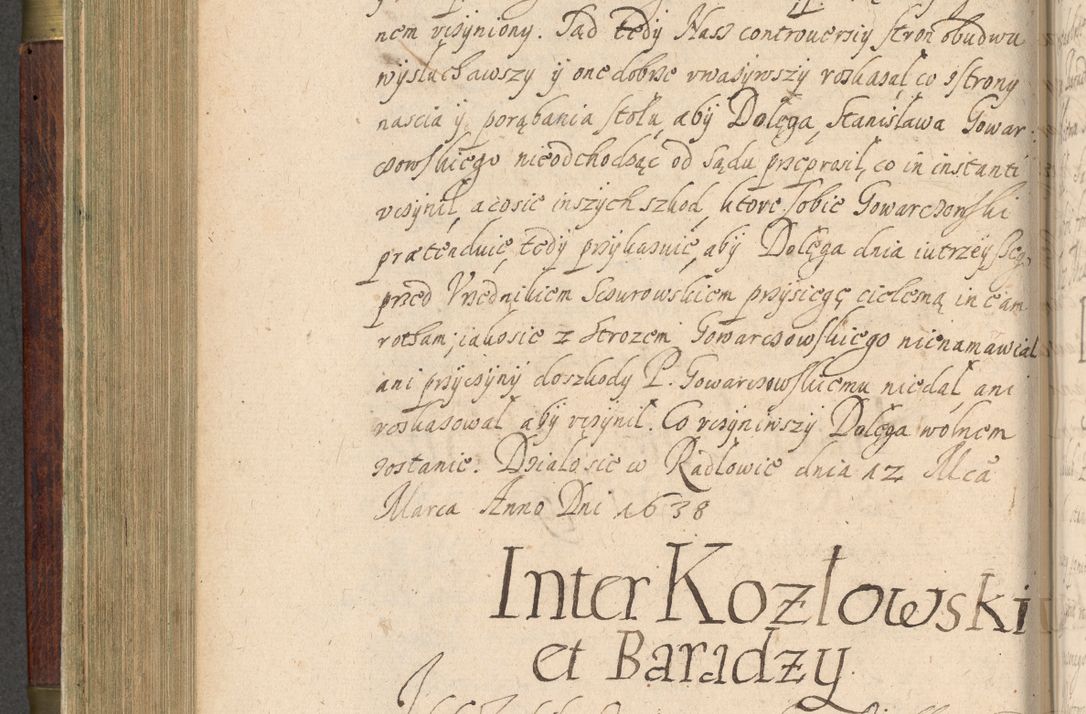 nem vczyniony. Sad tedy Nasz controuersiy stron obudwu
wysluchawszy y one dobrze vwazywszy roskazal co strony
nascia y porąbania stołu aby Dolęga Stanisława Gowar
czowskiego nieodchodząc od sądu przeprosił, co in instanti
vczynił, a cosie inszych szkod, ktore sobie Gowarczowski
prætenduie, tedy przykazuie, aby Dolęga dnia iutrzeyszeg
przed Vrzednikiem Sczurowskiem przysięgę cielesną in eam
rotham; iakosie z Strozem Gowarczowskiego nienamawial
ani przyczyny do szkody P. Gowarczowskiemu niedał, ani
roskazował aby vczynił. Co vczyniwszy Dolęga wolnem
zostanie. Dzialo sie w Radlowie dnia 12 Mca
Marca Anno Dni 1638
Inter Kozłowski
et Baradzy